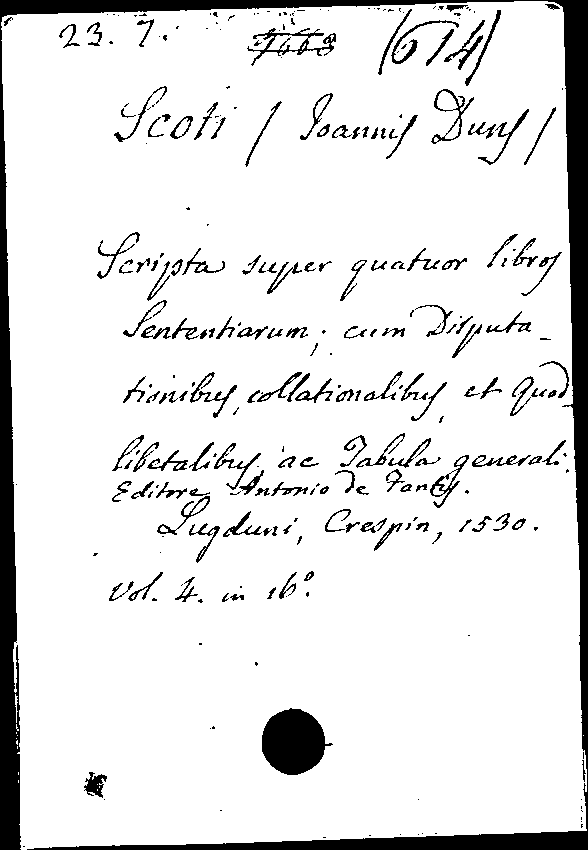 23. 7. (614)
Scoti / Joannis Duns /
Scripta super quatuor libros
Sententiarum; cum Disputa-
tionibus, collationalibus, et Quod
libetalibus, ac Tabula generali.
Editore Antonio de Fantis.
Lugduni, Crespin, 1530.
Vol. 4. in 16º.